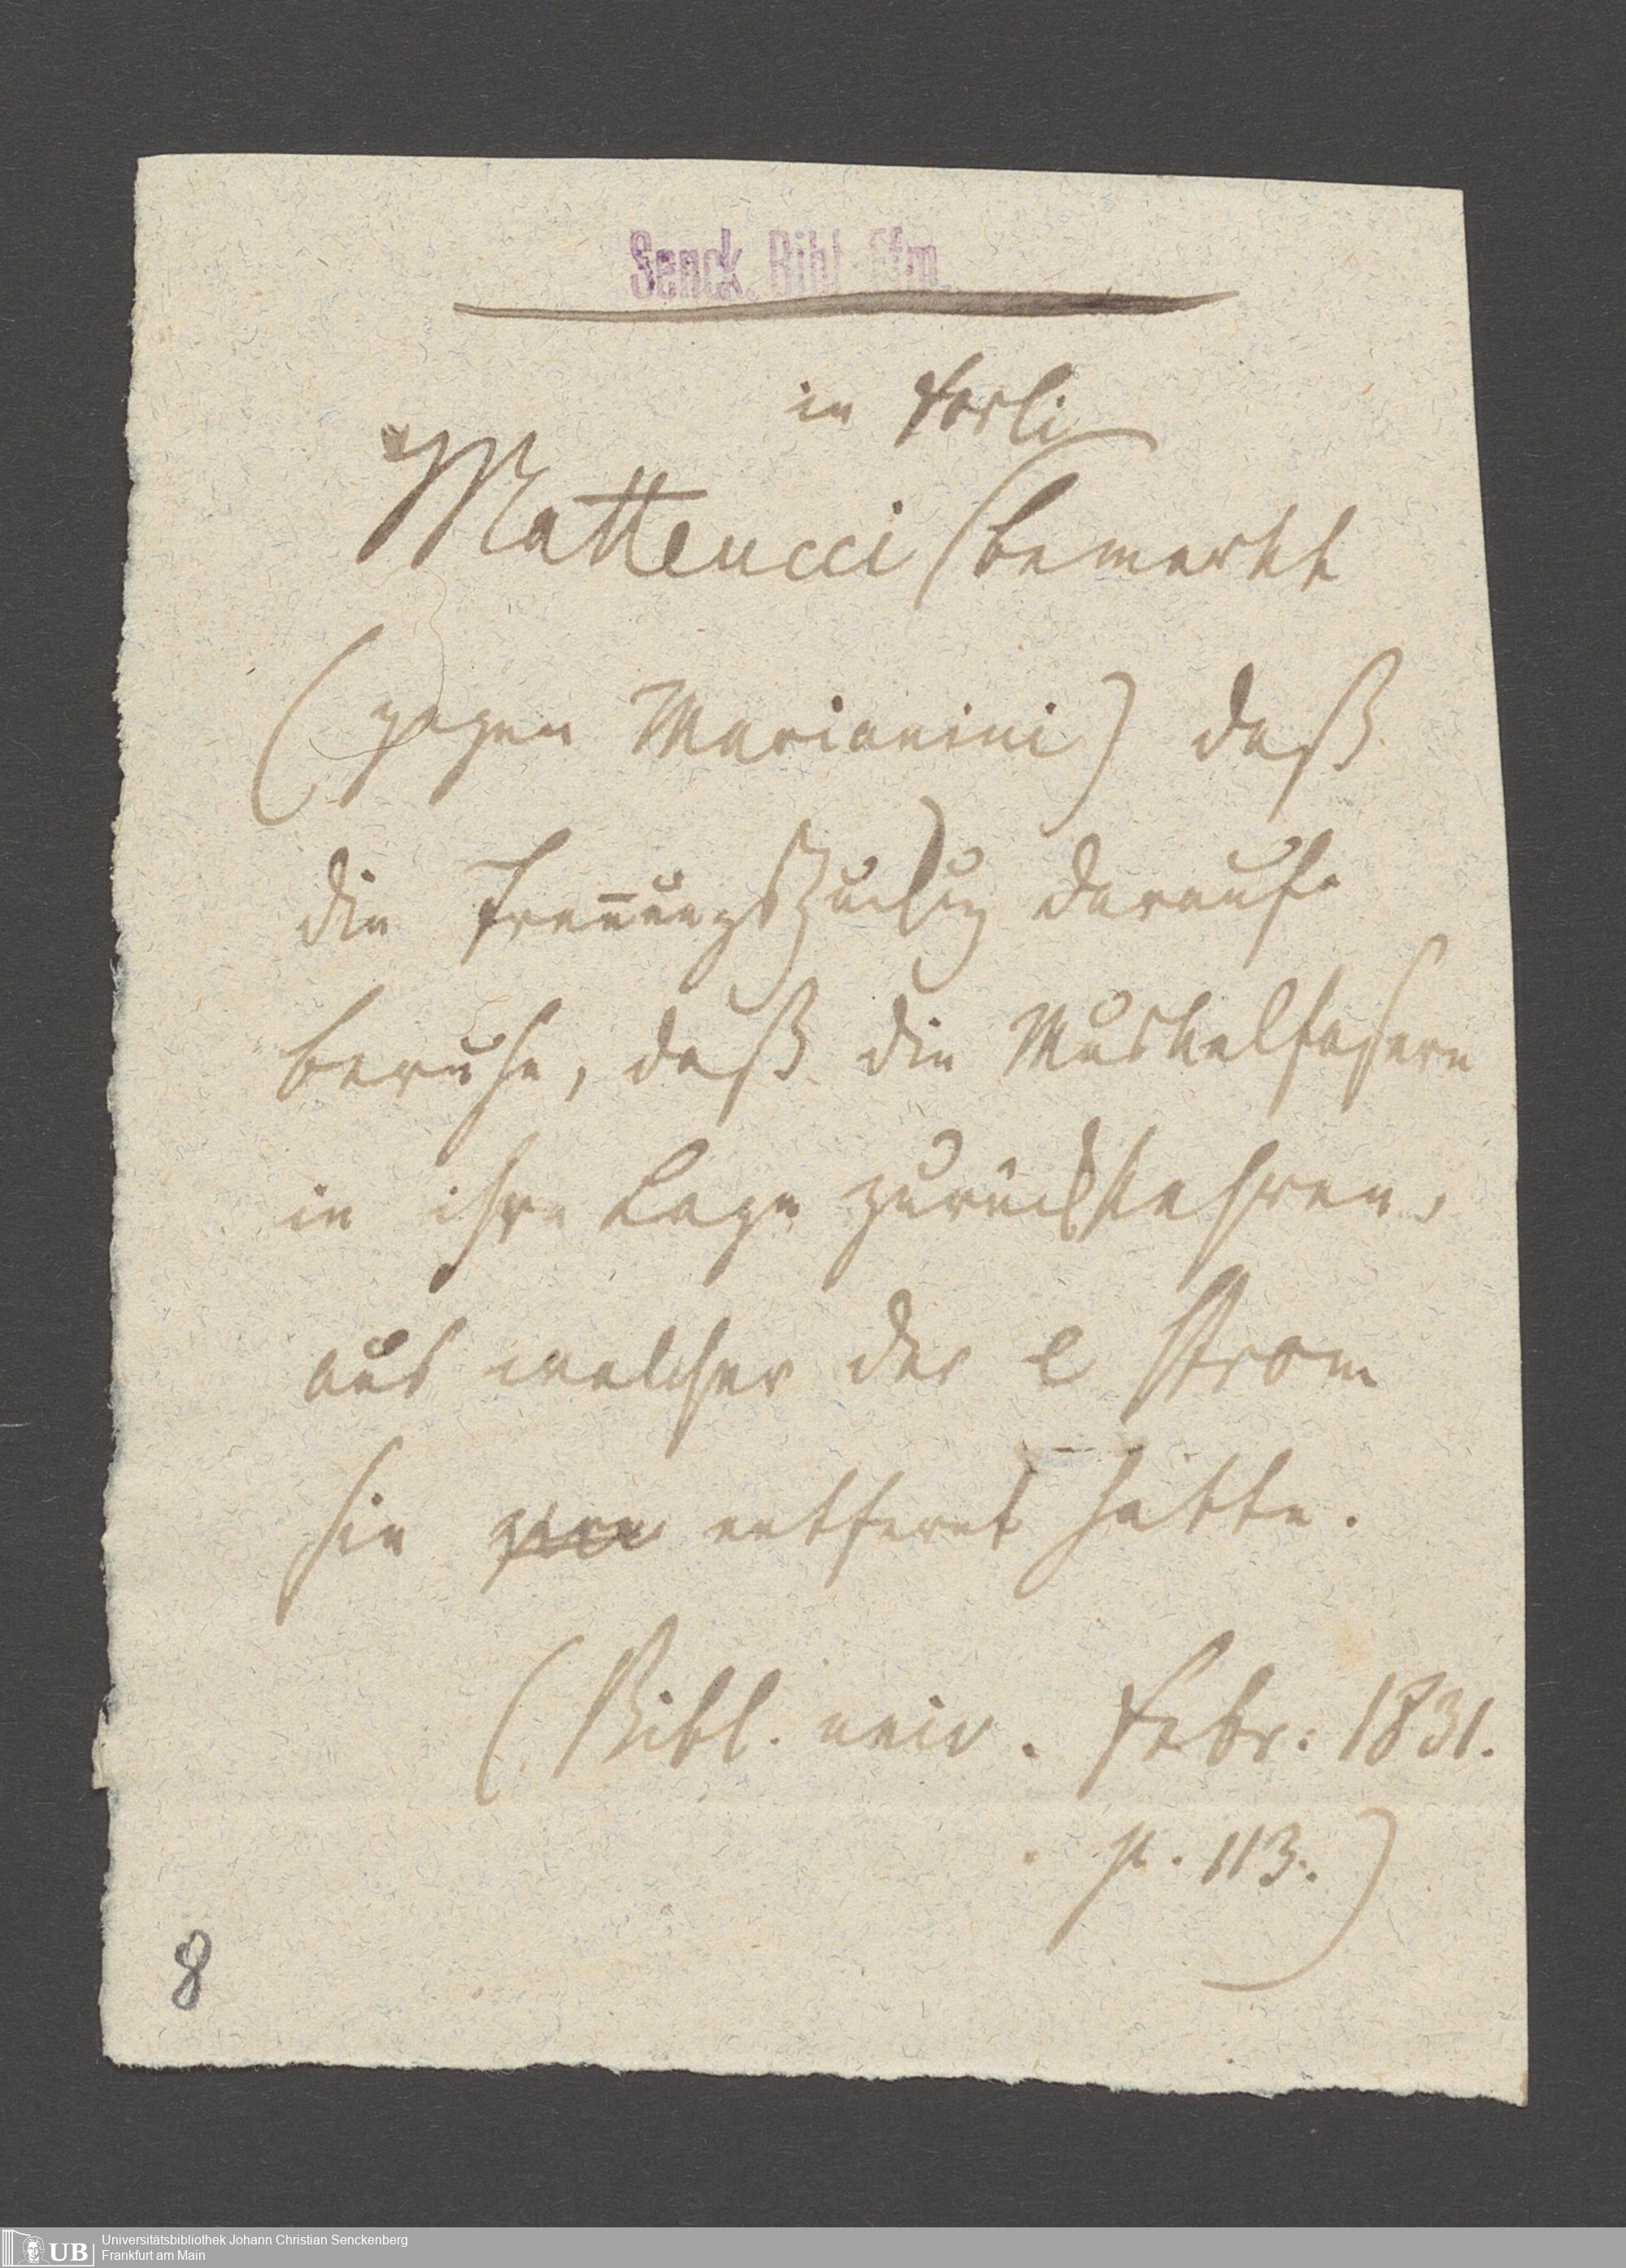 Senck. Bibl. Ffm.
in Forli
Matteucci bemerkt
(gegen Marianini) daß
die Treñungszuckug darauf
beruhe, daß die Muskelfasern
in ihre Lage zurückkehren,
aus welcher der e Strom
sie entfernt hatte.
(Bibl. univ. Febr: 1831.
p. 113.)
8
UB
Universitätsbibliothek Johann Christian Senckenberg
Frankfurt am Main